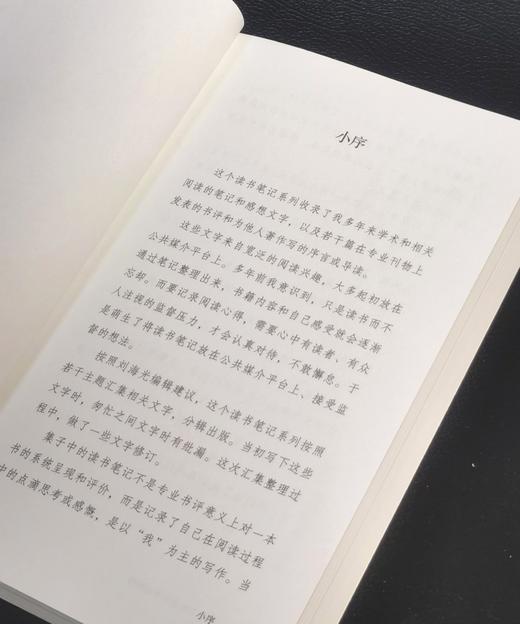 小序
这个读书笔记系列收录了我多年来学术和相关
阅读的笔记和感想文字，以及若干篇在专业刊物上
发表的书评和为他人著作写的序言或导读。
这些文字来自宽泛的阅读兴趣，大多起初放在
公共媒介平台上。多年前我意识到，只是读书而不
通过笔记整理出来，书籍内容和自己感受就会逐渐
忘却。而要记录阅读心得，需要心中有读者、有众
人注视的监督压力，才会认真对待，不敢懈怠。于
是萌生了将读书笔记放在公共媒介平台上、接受监
督的想法。
按照刘海光编辑建议，这个读书笔记系列按照
若干主题汇集相关文字，分辑出版。当初写下这些
文字时，匆忙之间文字时有纰漏。这次汇集整理过
程中，做了一些文字修订。
集子中的读书笔记不是专业书评意义上对一本
书的系统呈现和评价，而是记录了自己在阅读过程
中的点滴思考或感慨，是以“我”为主的写作。当
小序